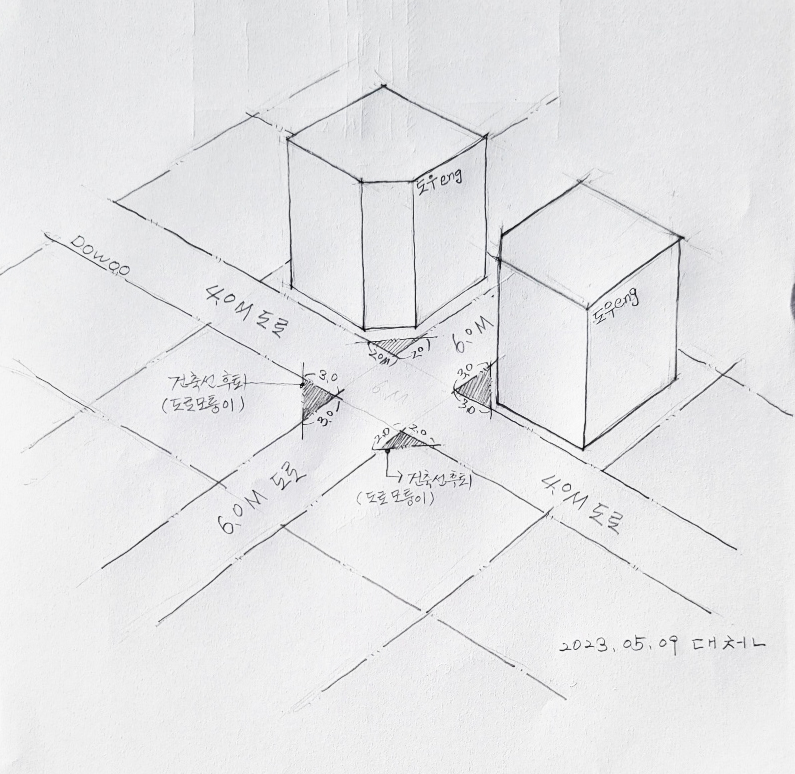 도우eng
Dowoo
도우eng
4.0M 도로
6.0M
2.0M
2.0
건축선후퇴
(도로모퉁이)
3.0
3.0
3.0
3.0
6.0M
2.0
2.0
건축선후퇴
(도로모퉁이)
6.0M 도로
4.0M 도로
2023.05.09 대천ㄴ